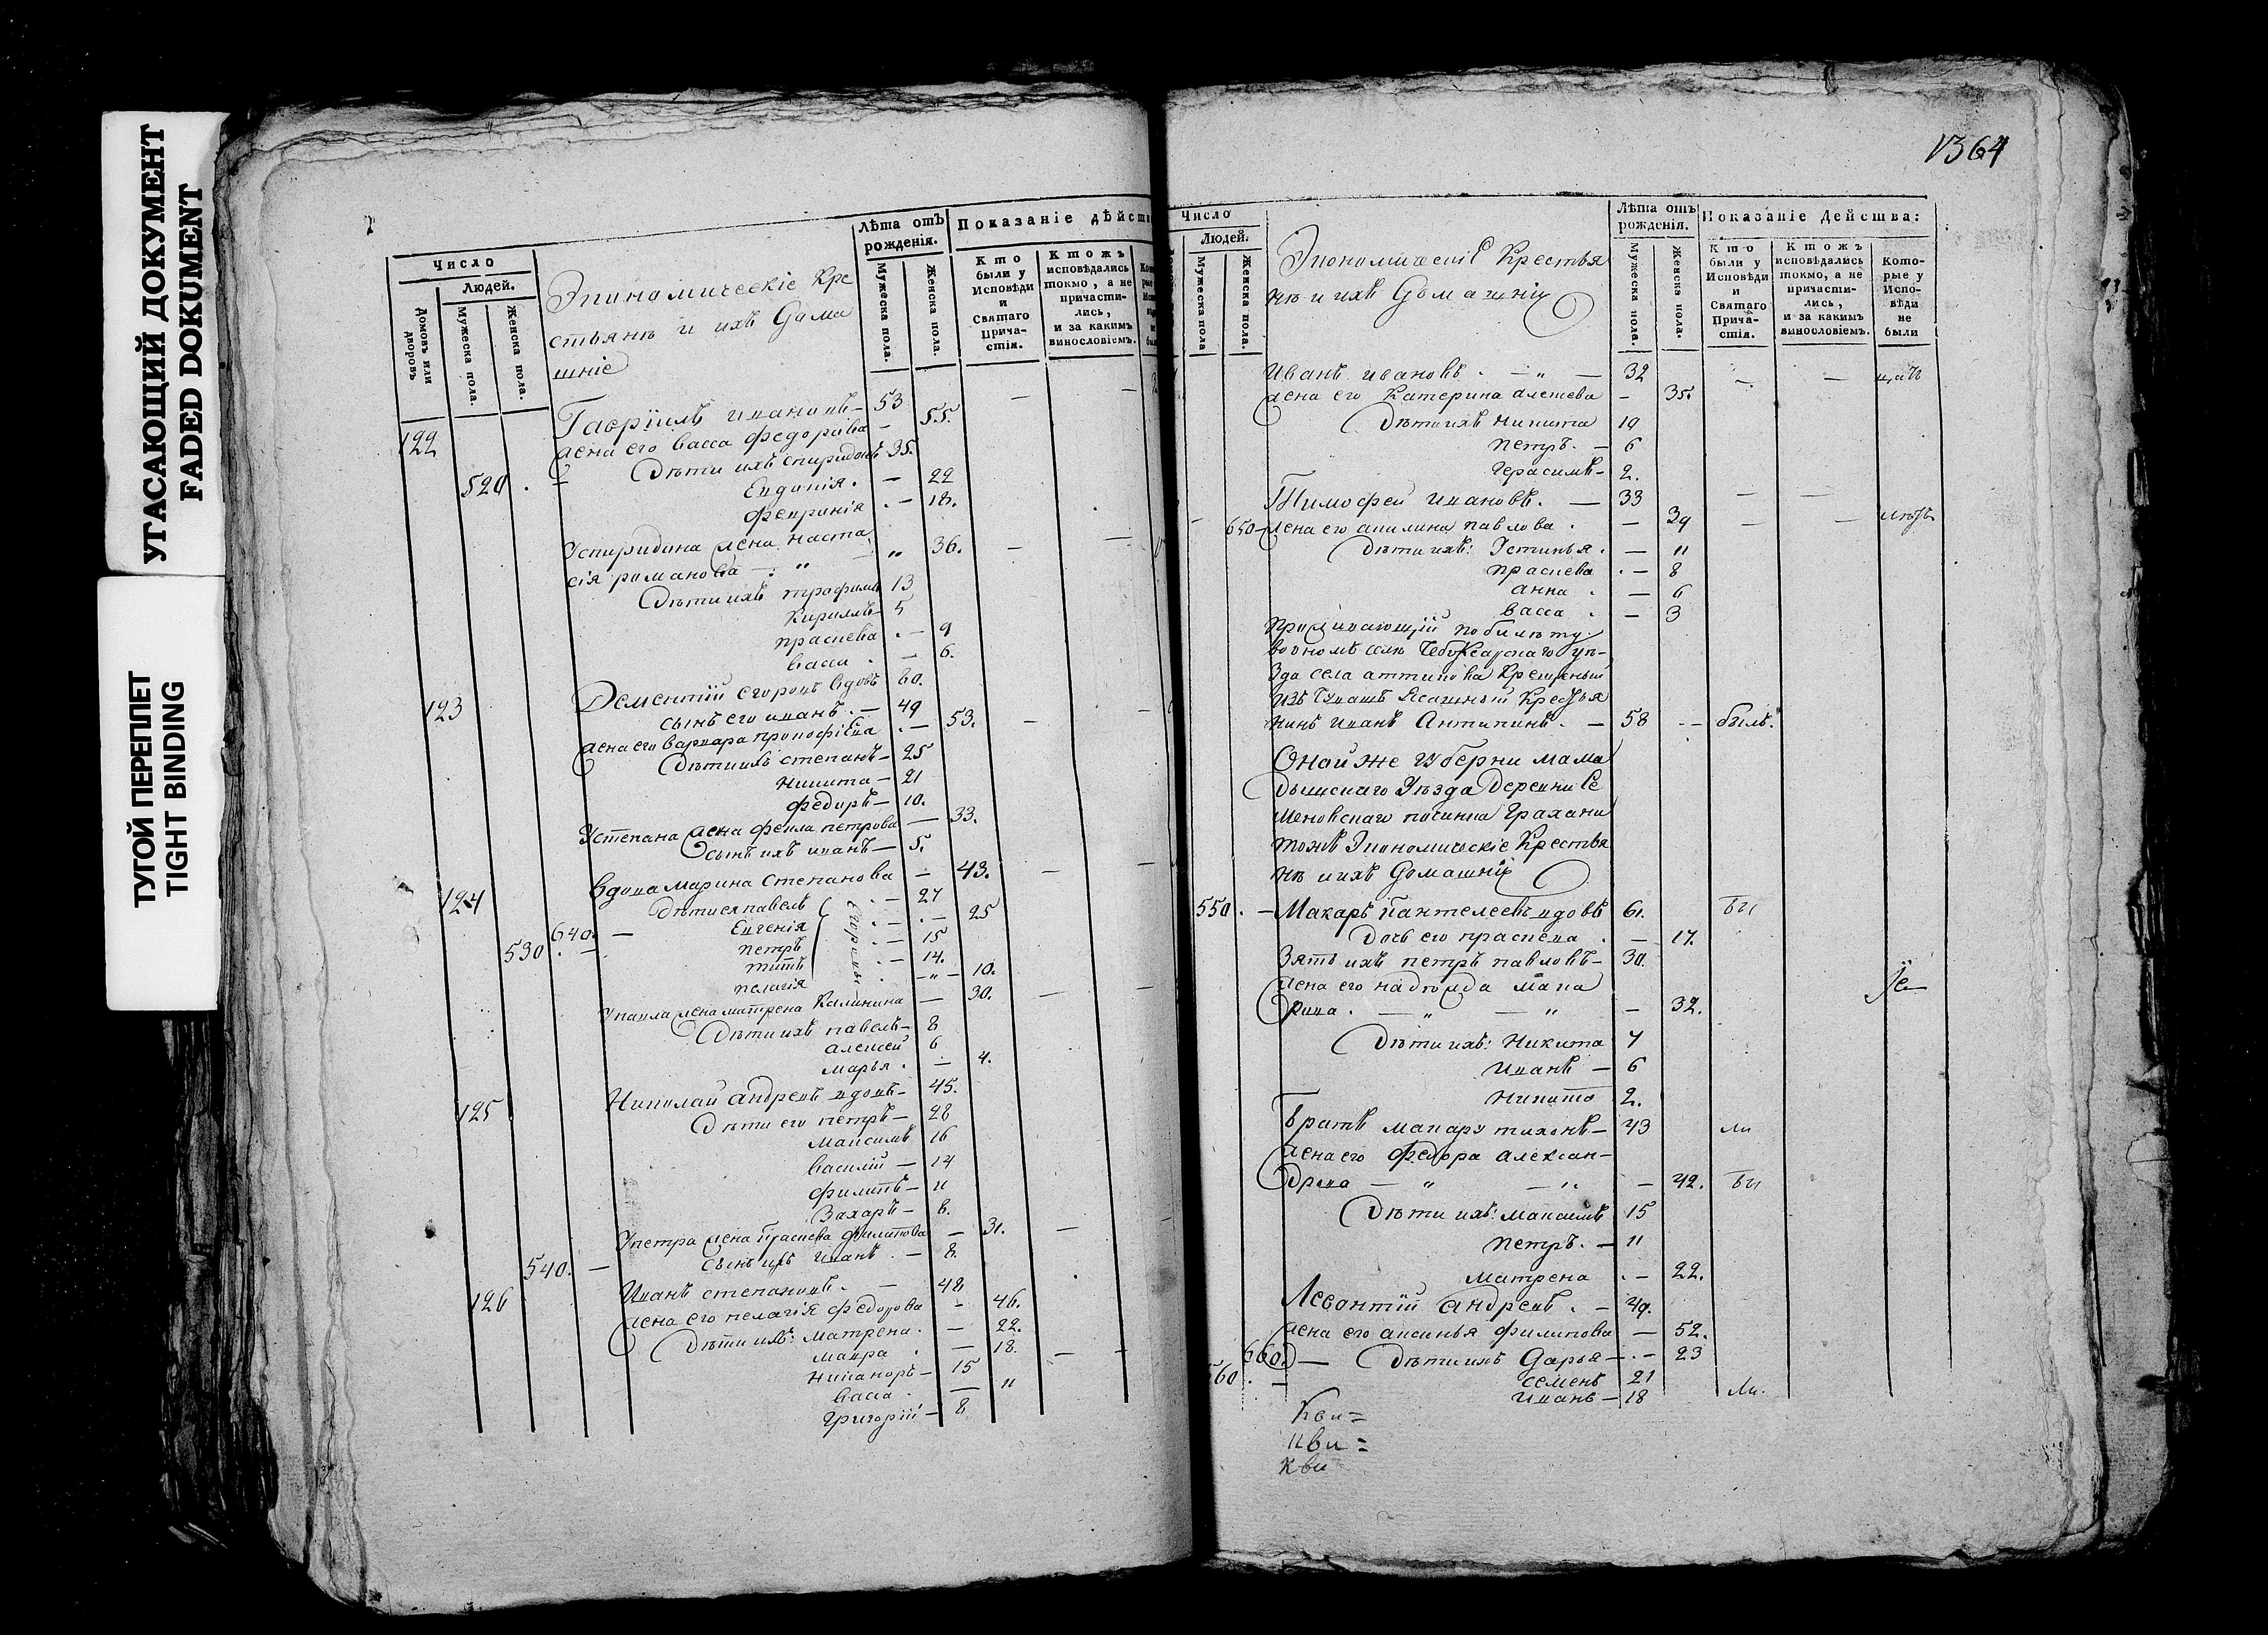 УГАСАЮЩИЙ ДОКУМЕНТ
FADED DOKUMENT
ТУГОЙ ПЕРЕПЛЕТ
TIGHT BINDING
Число
Людей.
Домовъ или дворовъ
Мужеска пола.
Женска пола.
Экономическіе Кре
стьянѣ и ихъ Дома
шніе
Лѣта отъ рожденія.
Мужеска пола.
Женска пола.
Показаніе дѣйст
Кто были у Исповѣди и Святаго Прича-стія.
Ктожъ исповѣдались токмо, а не причасти-лись, и за какимъ винословіемъ.
122 Гавріилъ Ивановъ – 53
жена его васса федорова – 55.
Дѣти ихъ спиридонъ 35.
520. – Евдокія. – 22
февронія . – 18.
Успиридона жена наста
сія романова – „ „ 36. –
Дѣти ихъ трофимъ 13
Кирилъ – 5
прасковя . – 9
васса . – 6.
123 Дементій егоровъ вдовъ 60.
сынъ его иванъ . – 49
жена его варвара прокофіева . – 53. –
Дѣти ихъ степанъ – 25
никита – 21
федоръ – 10.
Устепана жена фекла петрова – 33.
сынъ ихъ иванъ – 5.
124 вдова марина степанова – 43. –
дѣти ея павелъ . – 27
640. – Евгенія . – 25
530 . – петръ . – 15
титъ . – 14.
пелагія – „ – 10.
Упавла жена матрена Калинина – 30. –
Дѣти ихъ павелъ – 8
алексей 6
марья . – 4.
125 Николай андреевъ вдовъ – 45.
Дѣти его петръ – 28
максимъ 16
василій – 14
филипъ – 11
Захаръ – 8.
Упетра жена прасковя филипова – 31. –
540. – сынъ ихъ иванъ . – 8.
126 Иванъ степановъ . – 48
жена его пелагія федорова – 46.
Дѣти ихъ: матрена . – 22.
мавра . – 18.
никаноръ – 15
васса . – 11
григорій – 8
1364
Число
Людей.
Мужеска пола
Женска пола.
Экономическіе Крестья
нѣ и ихъ Домашніи
Лѣта отъ рожденія.
Мужеска пола.
Женска пола.
Показаніе Действа:
Кто были у Исповѣди и Святаго Прича-стія.
Ктожъ исповѣдались токмо, а не причасти-лись, и за какимъ винословіемъ.
Кото-рые у Испо-вѣди не были
Иванъ ивановъ . – „ – 32 – –
жена его Катерина алексева – 35.
Дѣти ихъ никита 10
петръ. – 6
герасимъ – 2.
Тимофей ивановъ. – 33 – –
650 – жена его акилина павлова . – 39 – –
Дѣти ихъ: Устинья . – 11
прасковя . – 8
анна . – 6
васса . – 3
проживающій побилѣту
воономъ селѣ Чебоксарскаго уѣ-
зда села аттикова Крещеный
изъ Чувашъ Ясашный Кресть я
нинъ иванъ Антипинъ. – 58 – – былъ.
Оной же губерни мама
дышскаго Уѣзда Деревни Се
меновскаго починка Грахани
тожъ Экономическіе Крестья
нѣ и ихъ Домашніи
550. – Макаръ Пантелеевъ вдовъ 61. бы
Дочь его прасковя . – 17.
Зять ихъ петръ павловъ – 30.
жена его надежда мака
рова . – „ – „ – 32.
Дѣти ихъ: Никита 7
иванъ – 6
никита 2.
Братъ макару тихонъ – 43 ли
жена его федора алексан-
дрова – „ – „ – 42. бы
Дѣти ихъ: максимъ 15
петръ. – 11
матрена . – 22.
Леонтій андреевъ . – 49.
жена его аксинья филипова – 52.
660. – Дѣти ихъ Дарья – . – 23
560 . – семенъ 21
иванъ – 18 ли.